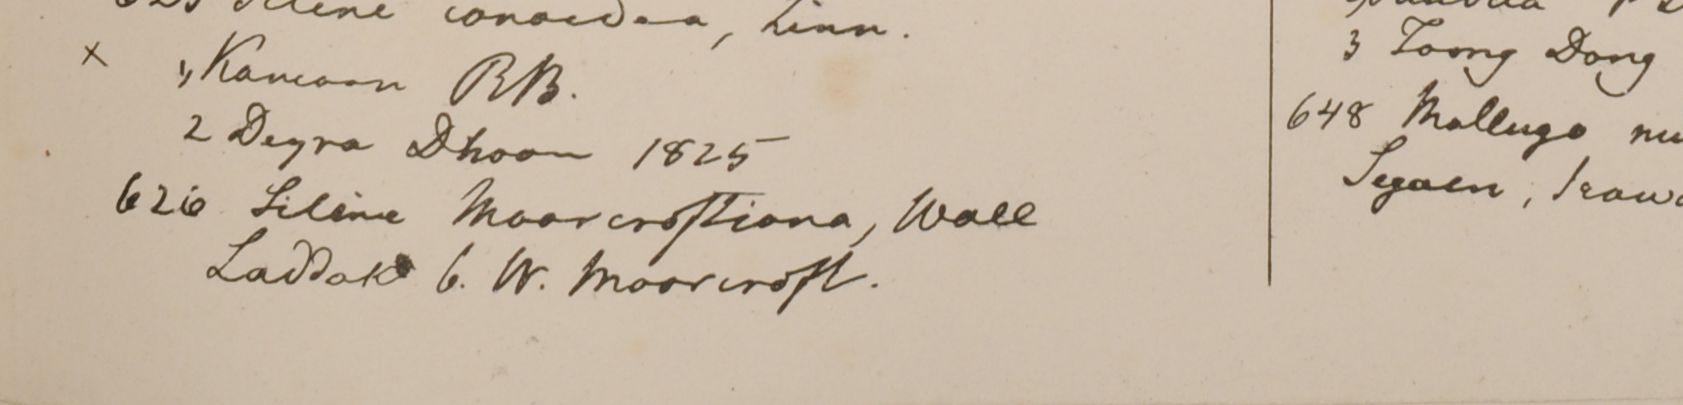 625 Silene conoidea, Linn.
x 1, Kamaon RB.
2 Deyra Dhoon 1825
626 Silene Moorcroftiana, Wall
Laddak 6. W. Moorcroft.
3 Toong Dong
648 Mollugo nu
Segaen, Irawa